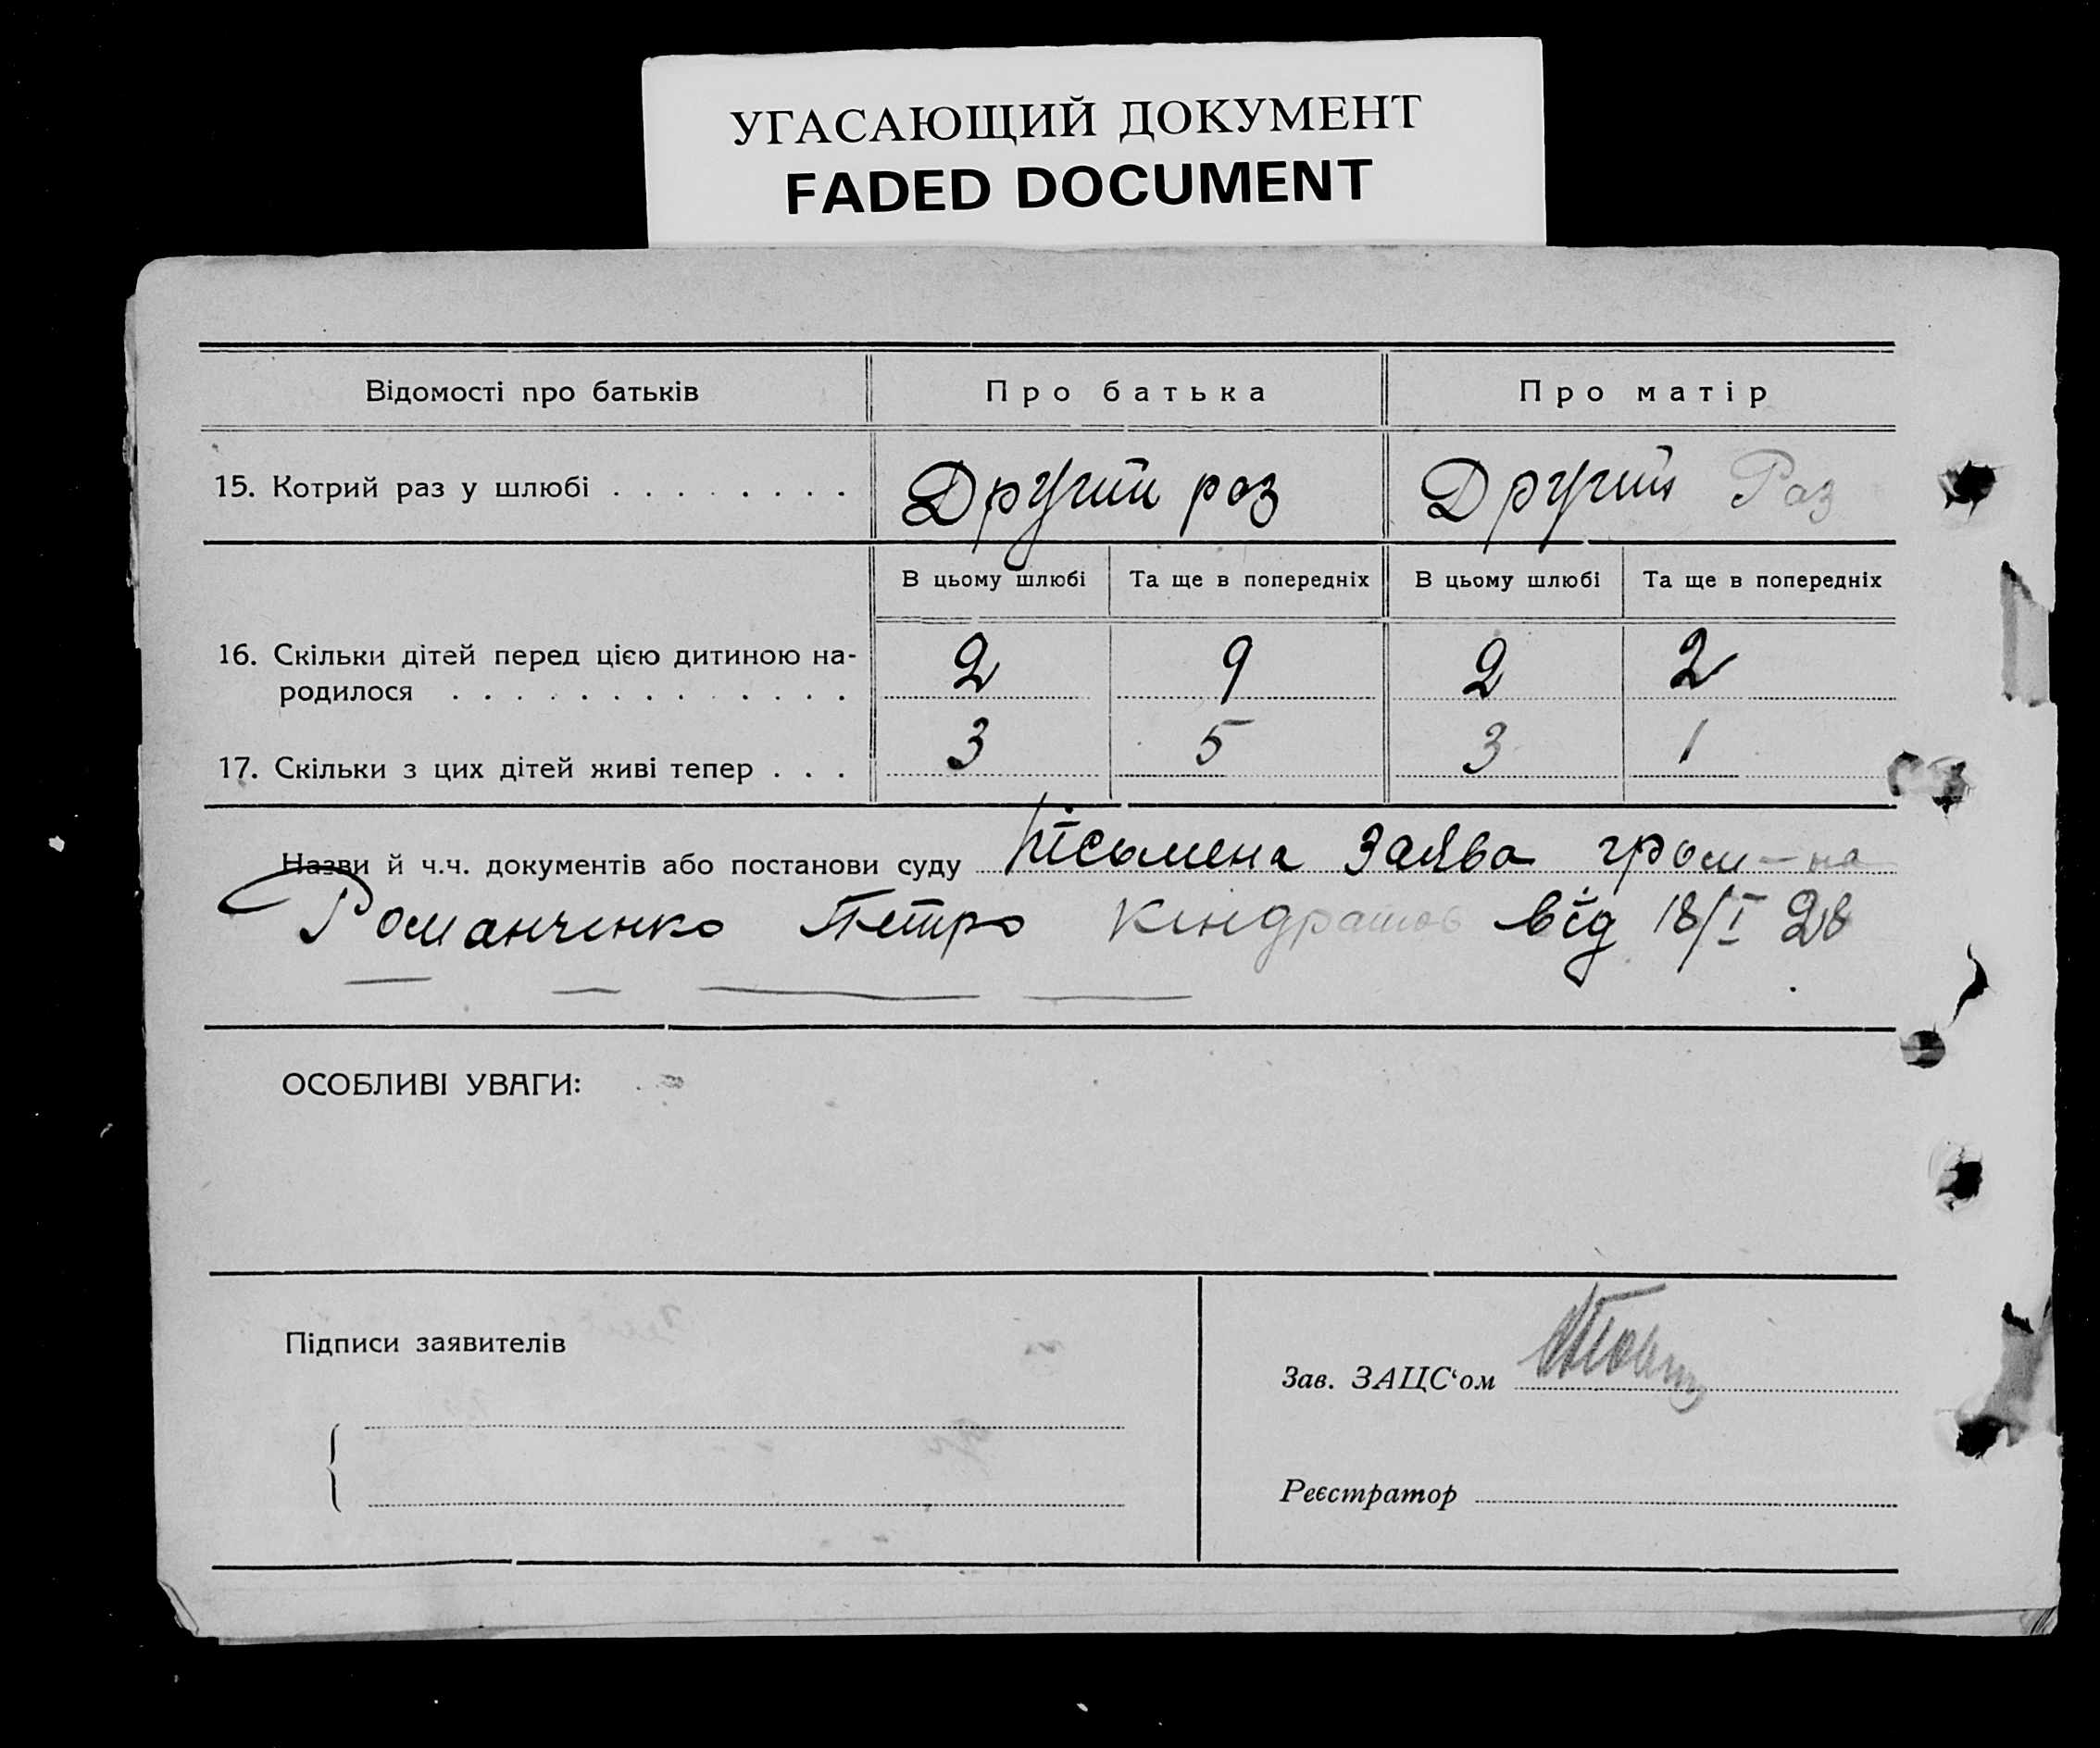 УГАСАЮЩИЙ ДОКУМЕНТ
FADED DOCUMENT
Відомості про батьків Про батька Про матір
15. Котрий раз у шлюбі . . . . . . . . Другий раз Другий Раз
В цьому шлюбі Та ще в попередніх В цьому шлюбі Та ще в попередніх
16. Скільки дітей перед цією дитиною на-
родилося . . . . . . . . . . . . . 2 9 2 2
17. Скільки з цих дітей живі тепер . . . 3 5 3 1
Назви й ч.ч. документів або постанови суду Пісьмена Заява гром-на
Романченко Петро Кіндратов від 18/I 28
ОСОБЛИВІ УВАГИ:
Підписи заявителів
Зав. ЗАЦС‘ом
Реєстратор